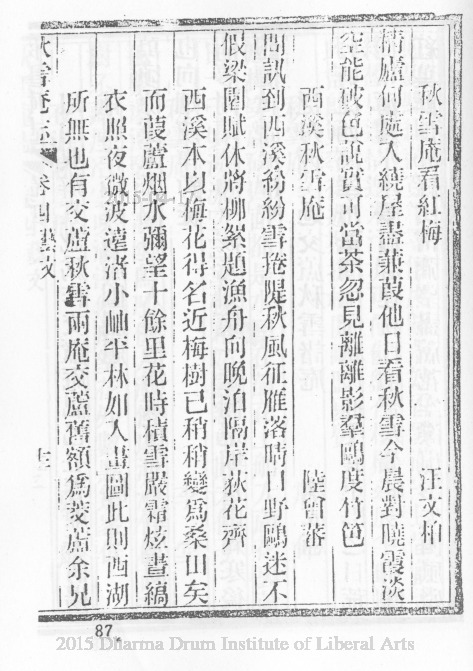 秋雪庵看紅梅 汪文柏
精廬何處入繞屋盡蒹葭他日看秋雪今晨對曉霞淡
空能破色說實可當茶忽見離離影羣鷗度竹笆
西溪秋雪庵 陸曾蕃
問訊到西溪紛紛雪捲隄秋風征雁落時日野鷗迷不
假梁園賦休將柳絮題漁舟向晚泊隔岸荻花齊
西溪本以梅花得名近梅樹已稍稍變為桑田矣
而葭蘆烟水彌望十餘里花時積雪嚴霜炫晝縞
衣照夜微波遠渚小岫平林如入畫圖此則西湖
所無也有交蘆秋雪兩庵交蘆舊額為茭蘆余兄
秋雪庵志 卷四 藝文 十一
87
2015 Dharma Drum Institute of Liberal Arts